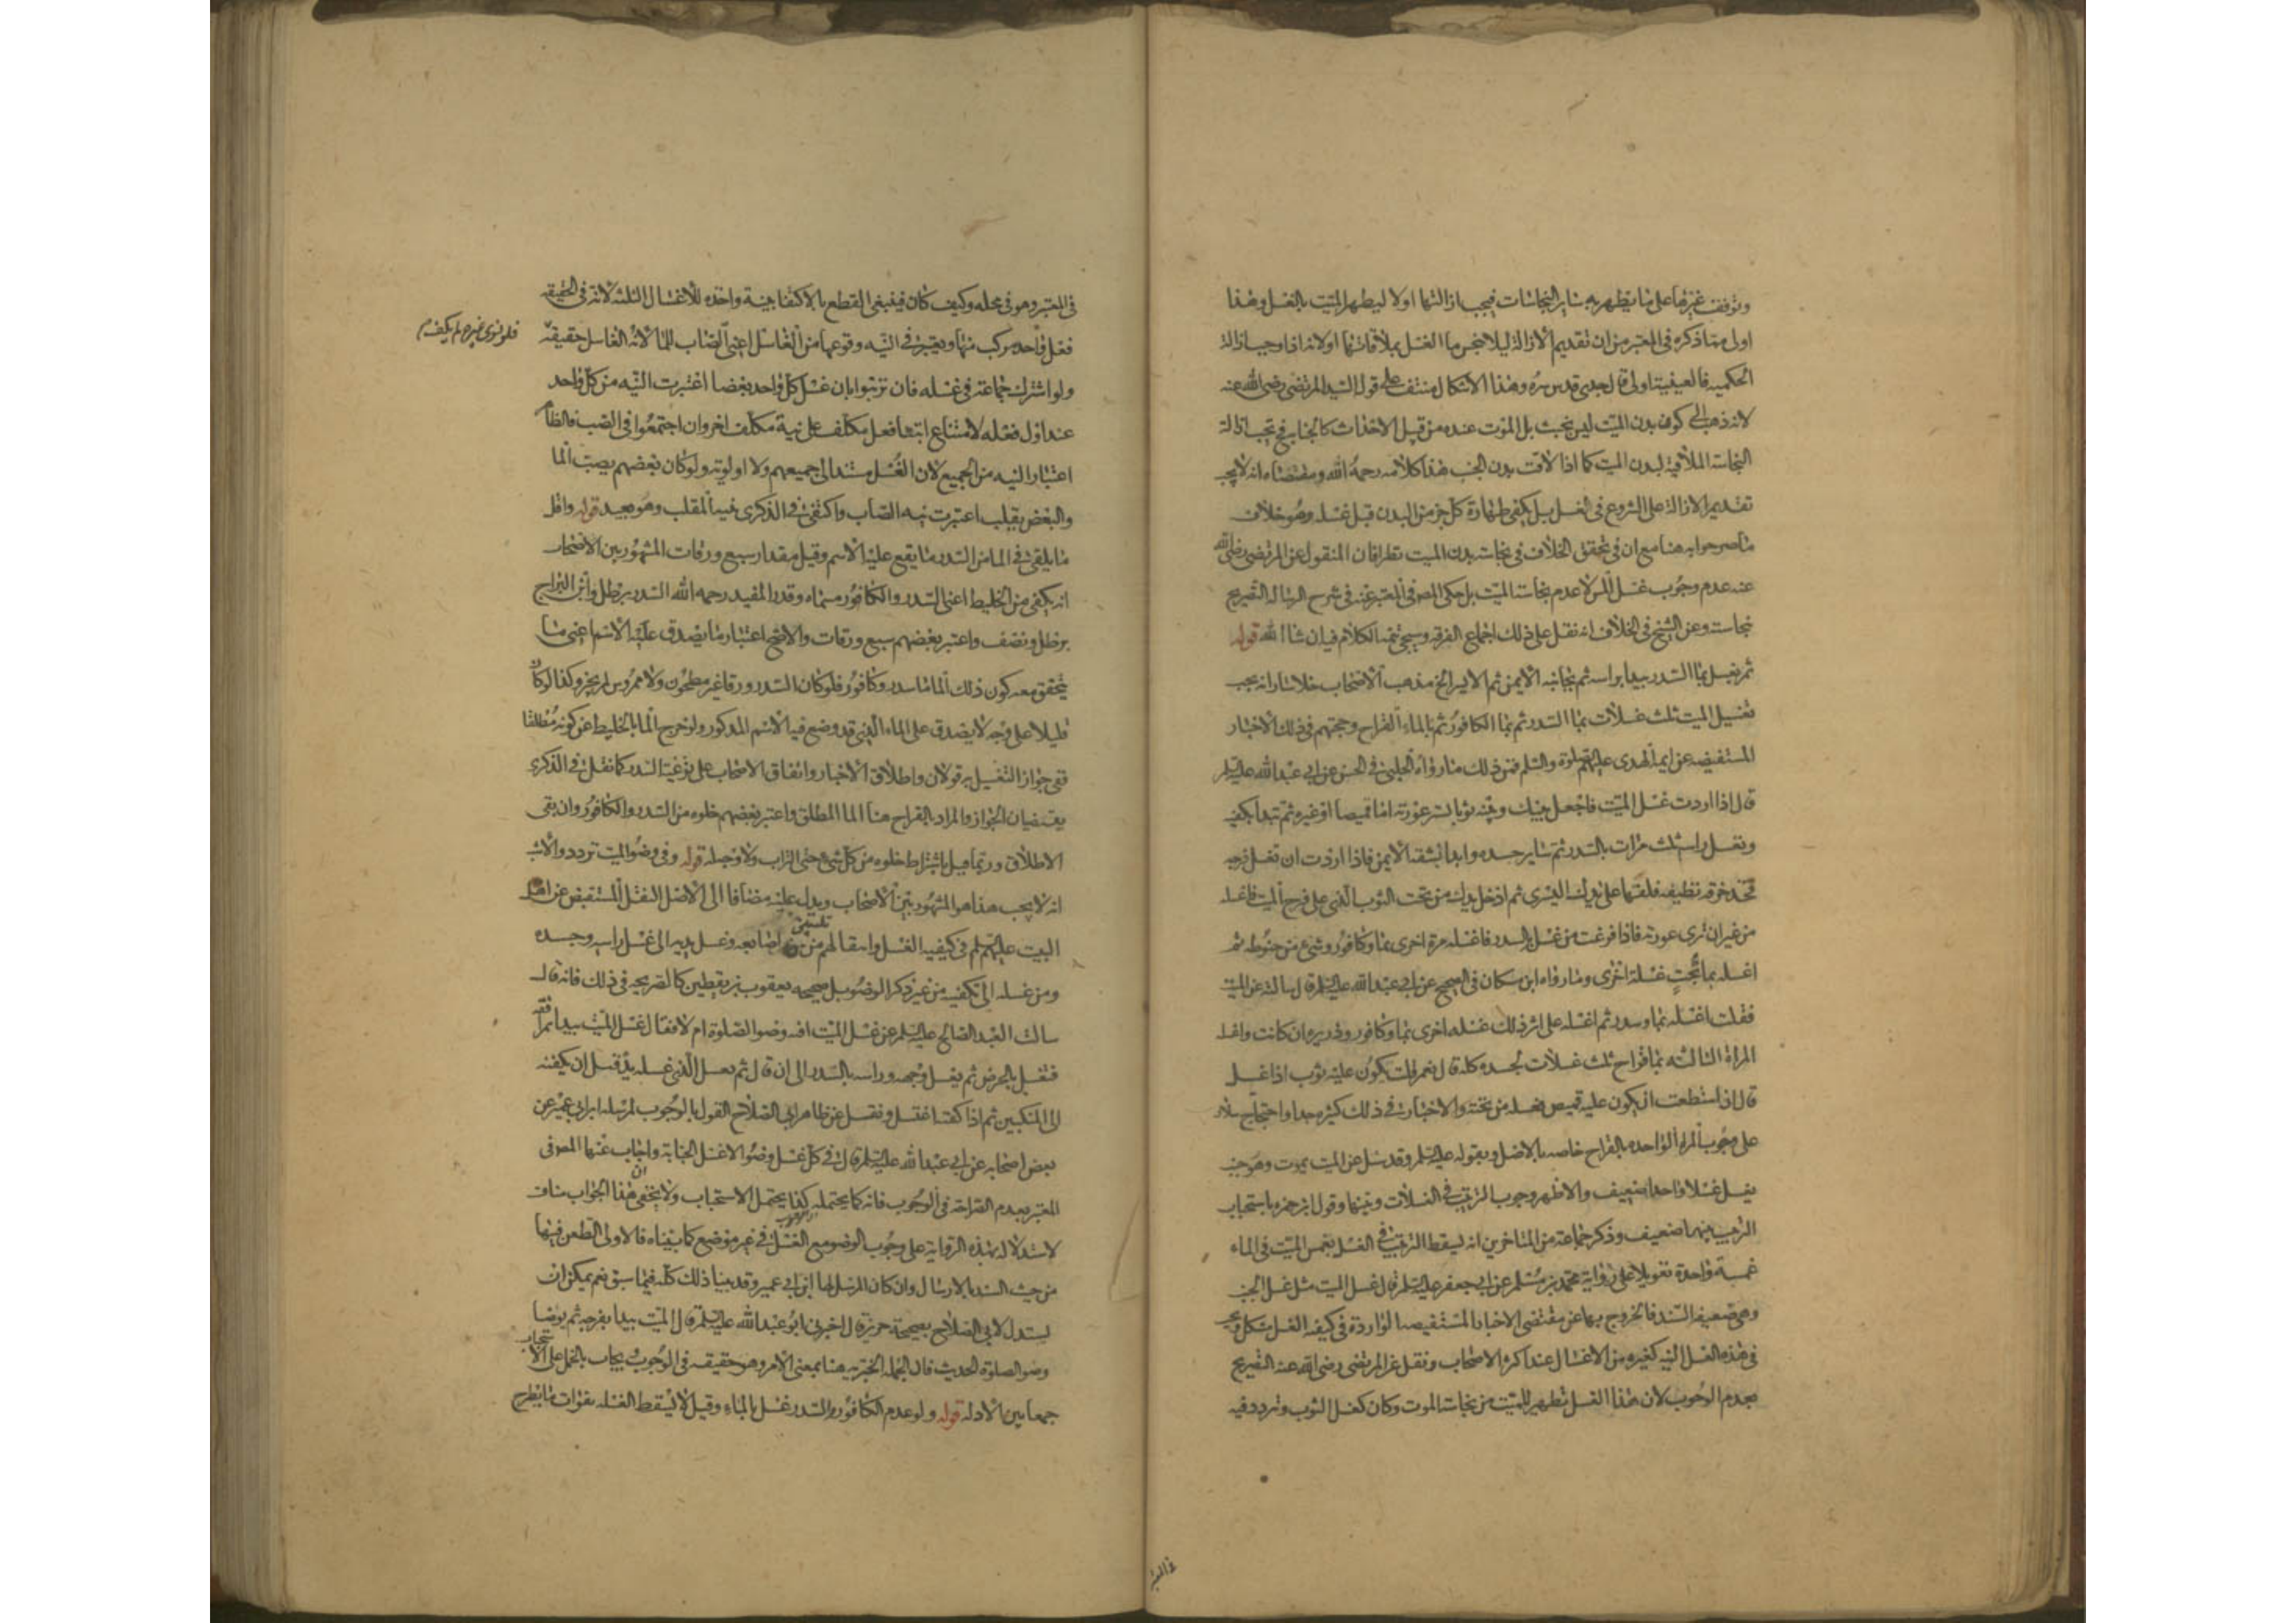 وتوقف غيرها على ما يظهر به ساير النجاسات فيجب ازالتها اولا ليطهر الميت بالغسل وهذا
اولى مما ذكره فى المعتبر من ان تقديم الازالة ليلا ينجس ما الغسل بملاقاتها ولانه اذا وجب ازالة
الحكميه فالعينية اولى قال جدى قدس سره وهذا الاشكال منتف على قول السيد المرتضى رضى الله عنه
لانه ذهب الى كون بدن الميت ليس بخبث بل الموت عنده من قبيل الاحداث كالجنابه فح تجب ازالة
النجاسة الملاقية لبدن الميت كما اذا لاقت بدن الجنب هذا كلامه رحمه الله ومقتضاه انه لا يجب
تقديم الازالة على الشروع فى الغسل بل يكفى طهارة كل جز من البدن قبل غسله وهو خلاف
ما صرحوا به هنا مع ان فى تحقق الخلاف فى نجاسة بدن الميت نظرا فان المنقول عن المرتضى رضى الله
عنه عدم وجوب غسل المس لا عدم نجاسة الميت بل حكى المص فى المعتبر عنه فى شرح الرسالة التصريح
بنجاسته وعن الشيخ فى الخلاف انه نقل على ذلك اجماع الفرقه وسيجئ تتمه الكلام فيه ان شا الله قوله
ثم يغسل بما السدر يبدا براسه ثم بجانبه الايمن ثم الايسر الخ مذهب الاصحاب خلا سلار انه يجب
تغسيل الميت ثلث غسلات بما السدر ثم بما الكافور ثم بالماء القراح وحجتهم فى ذلك الاخبار
المستفيضه عن ايمة الهدى عليهم الصلوة والسلم فمن ذلك ما رواه الحلبى فى الحسن عن ابى عبد الله عليه السلم
قال اذا اردت غسل الميت فاجعل بينك وبينه ثوبا يستر عورته اما قميصا او غيره ثم تبدا بكفيه
وتغسل راسه ثلث مرات بالسدر ثم ساير جسده وابدا بشقه الايمن فاذا اردت ان تغسل فرجه
فخذ خرقه نظيفه فلفها على يدك اليسرى ثم ادخل يدك من تحت الثوب الذى على فرج الميت فاغسله
من غير ان ترى عورته فاذا فرغت من غسله بالسدر فاغسله مرة اخرى بما وكافور وشئ من حنوطه ثم
اغسله بما بحت غسلة اخرى وما رواه ابن مسكان فى الصحيح عن ابى عبد الله عليه السلم قال سالته عن الميت
فقلت اغسله بما وسدر ثم اغسله على اثر ذلك غسله اخرى بما وكافور وذريره ان كانت واغسله
المراة الثالثه بما قراح ثلث غسلات لجسده كله قال نعم قلت يكون عليه ثوب اذا غسل
قال اذا استطعت ان يكون عليه قميص فغسله من تحته والاخبار فى ذلك كثيره جدا واحتجاج سلار
على وجوب المراة الواحده بالقراح خاصه بالاصل وبقوله عليه السلم وقد سئل عن الميت يموت وهو جنب
يغسل غسلا واحدا ضعيف والاظهر وجوب الترتيب فى الغسلات وبينها وقول ابن حمزه باستحباب
الترتيب بينهما ضعيف وذكر جماعة من المتاخرين انه يسقط الترتيب فى الغسل بغمس الميت فى الماء
غمسة واحدة تعويلا على رواية محمد بن مسلم عن ابى جعفر عليه السلم قال غسل الميت مثل غسل الجنب
وهى ضعيفة السند فالخروج بها عن مقتضى الاخبار المستفيضه الواردة فى كيفيه الغسل مشكل ويجب
فى هذه الغسل النيه كغيره من الاغسال عند اكثر الاصحاب ونقل عن المرتضى رضى الله عنه التصريح
بعدم الوجوب لان هذا الغسل تطهير للميت من نجاسة الموت وكان كغسل الثوب وتردد فيه
فى المعتبر
فى المعتبر وهو فى محله وكيف كان فينبغى القطع بالاكتفا بنية واحده للاغسال الثلثه لانه فى الحقيقه
فعل واحد مركب منها ويعتبر فى النيه وقوعها من الغاسل اعنى الصاب للما لانه الغاسل حقيقة
فلو نوى غيره لم يكف م
ولو اشترك جماعة فى غسله فان ترتبوا بان غسل كل واحد بعضا اعتبرت النيه من كل واحد
عند اول فعله لامتناع ابتنا فعل مكلف على نية مكلف اخر وان اجتمعوا فى الصب فالظاهر
اعتبار النيه من الجميع لان الغسل مستند الى جميعهم ولا اولوية ولو كان بعضهم يصب الما
والبعض يقلب اعتبرت نيه الصاب واكتفى فى الذكرى بنية المقلب وهو بعيد قوله واقل
ما يلقى فى الما من السدر ما يقع عليه الاسم وقيل مقدار سبع ورقات المشهور بين الاصحاب
انه يكفى من الخليط اعنى السدر والكافور مسماه وقدر المفيد رحمه الله السدر برطل وابن البراج
برطل ونصف واعتبر بعضهم سبع ورقات والاصح اعتبار ما يصدق عليه الاسم اعنى ما
يتحقق معه كون ذلك الما ما سدر وكافور فلو كان السدر ورقا غير مطحون ولا ممروس لم يجز وكذا لو كان
قليلا على وجه لا يصدق على الماء الذى قد وضع فيه الاسم المذكور ولو خرج الما بالخليط عن كونه مطلقا
ففى جواز التغسيل به قولان واطلاق الاخبار واتفاق الاصحاب على ترغية السدر كما نقل فى الذكرى
يقتضيان الجواز والمراد بالقراح هنا الما المطلق واعتبر بعضهم خلوه من السدر والكافور وان بقى
الاطلاق وربما قيل باشتراط خلوه من كل شئ حتى التراب ولا وجه له قوله وفى وضو الميت تردد والاشبه
انه لا يجب هذا هو المشهور بين الاصحاب ويدل عليه مضافا الى الاصل النقل المستفيض عن اهل
البيت عليهم السلم فى كيفيه الغسل وانتقالهم من تليين اصابعه وغسل يديه الى غسل راسه وجسده
ومن غسله الى تكفينه من غير ذكر الوضو بل صحيحه يعقوب بن يقطين كالصريحه فى ذلك فانه قال
سالت العبد الصالح عليه السلم عن غسل الميت افيه وضو الصلوة ام لا فقال غسل الميت يبدا بمرافقه
فتغسل بالحرض ثم يغسل وجهه وراسه بالسدر الى ان قال ثم يغسل الذى غسله يده قبل ان يكفنه
الى المنكبين ثم اذا كفنه اغتسل ونقل عن ظاهر ابى الصلاح القول بالوجوب لمرسلة ابن ابى عمير عن
بعض اصحابه عن ابى عبد الله عليه السلم قال فى كل غسل وضو الا غسل الجنابة واجاب عنها المص فى
المعتبر بعدم الصراحة فى الوجوب فانه كما يحتمله كذا يحتمل الاستحباب ولا يخفى ان هذا الجواب مناف
لاستدلاله بهذه الرواية على وجوب الوضو مع الغسل فى غير موضع كما بيناه فالاولى الطعن فيها
من حيث السند بالارسال وان كان المرسل لها ابن ابى عمير وقد بينا ذلك كله فيما سبق نعم يمكن ان
يستدل لابى الصلاح بصحيحة حريز قال اخبرنى ابو عبد الله عليه السلم قال الميت يبدا بفرجه ثم يوضا
وضو الصلوة الحديث فان الجمله الخبريه هنا بمعنى الامر وهو حقيقه فى الوجوب ويجاب بالحمل على الاستحباب
جمعا بين الادله قوله ولو عدم الكافور والسدر غسل بالماء وقيل لا تسقط الغسله بفوات ما يطرح